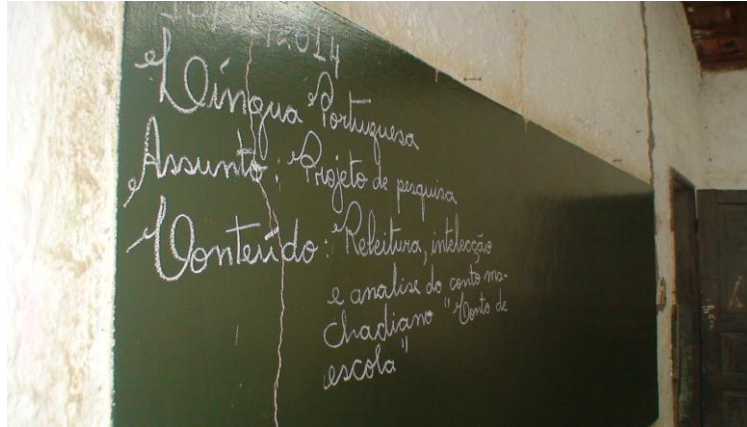 2014
Língua Portuguesa
Assunto: Projeto de pesquisa
Conteúdo: Releitura, intelecção
e analise do conto ma-
chadiano "Conto de
escola"